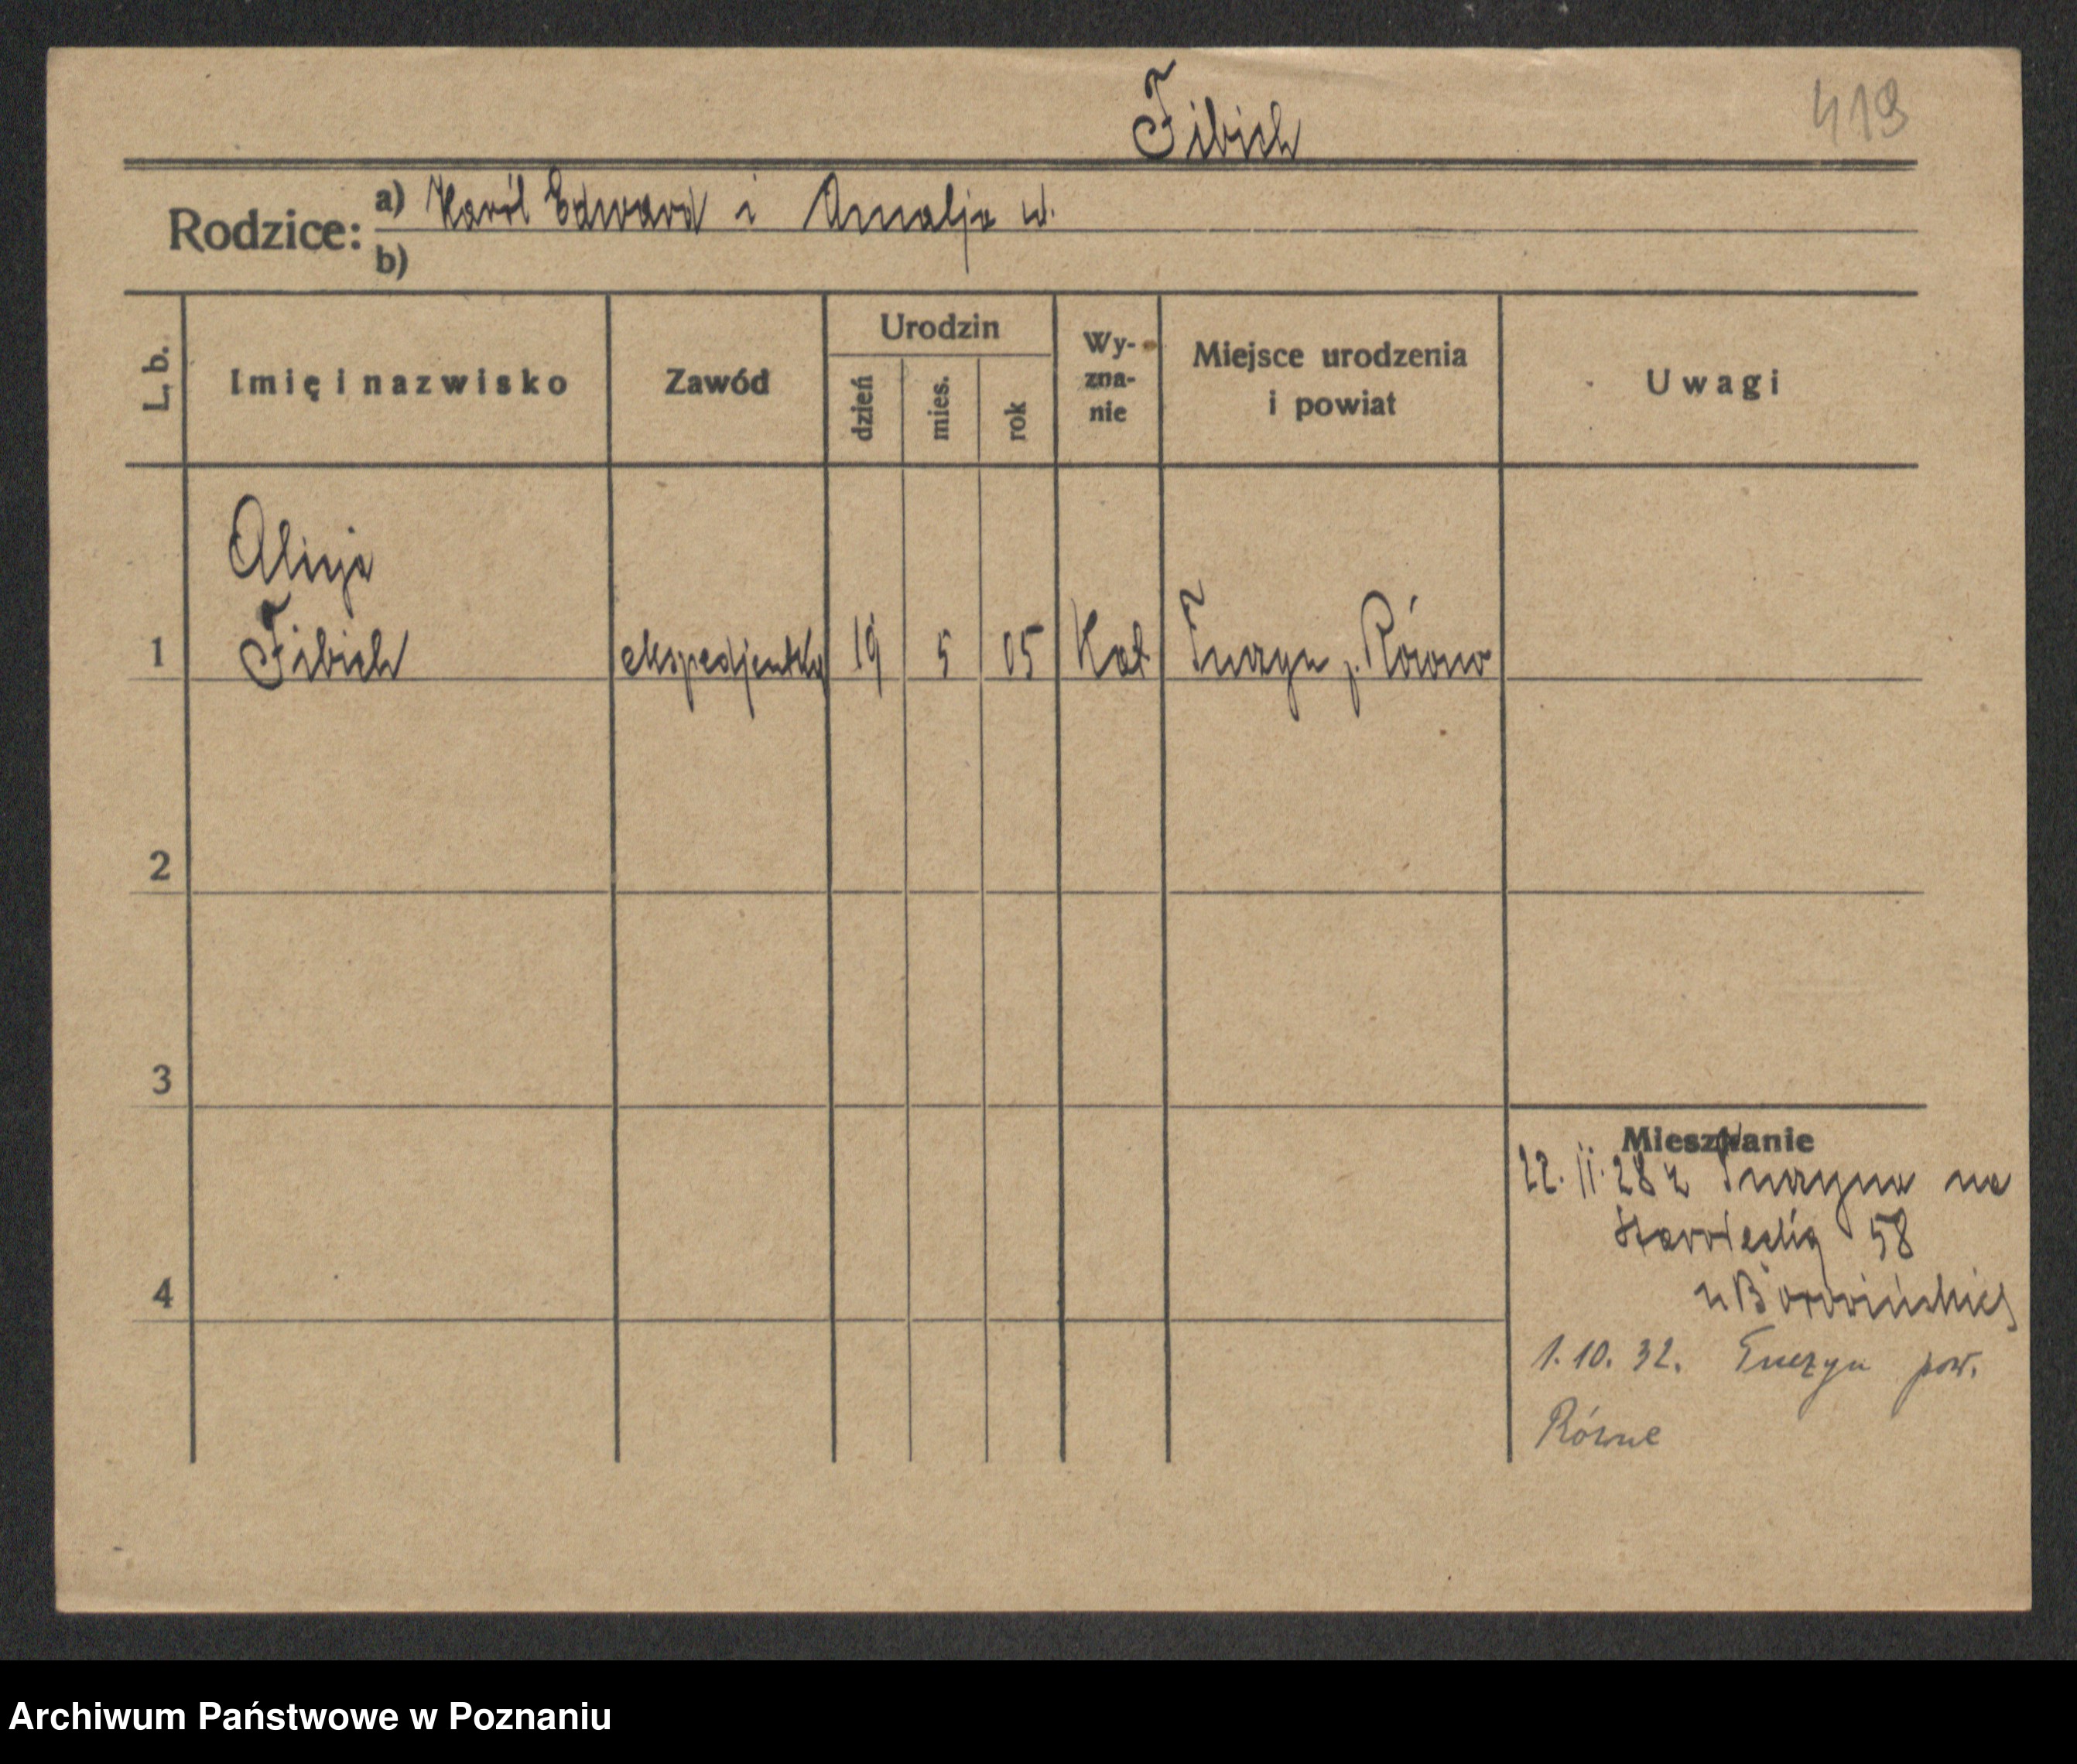 Fibich
419
Rodzice: a) Karól Edward i Amalja
b)
L. b.
Imię i nazwisko
Zawód
Urodzin
dzień
mies.
rok
Wy-
zna-
nie
Miejsce urodzenia
i powiat
Uwagi
Alicja
1 Fibich ekspedjentka 19 5 05 Kat Tuczyn p. Równo
2
3
4
Mieszkanie
22. 11. 28 z Tuczyna na
58
u
1. 10. 32. Tuczyn pow.
Równe
Archiwum Państwowe w Poznaniu